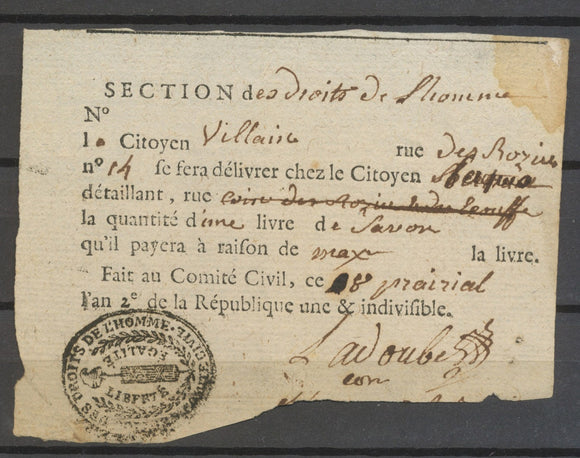 SECTION des droits de l'homme
N°
le Citoyen Villain rue des Rozier
n° 14 se fera délivrer chez le Citoyen
détaillant, rue
la quantité d'une livre de Savon
qu'il payera à raison de max la livre.
Fait au Comité Civil, ce 8 prairial
l'an 2e de la République une & indivisible.
Ladoubé
com
DES DROITS DE L'HOMME
EGALITÉ
LIBERTÉ